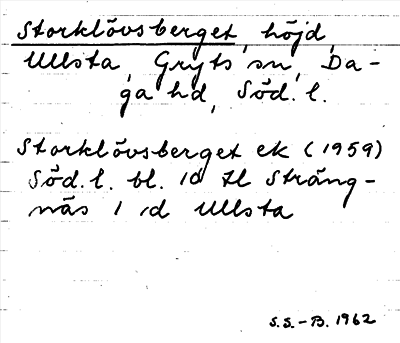 Storklövsberget, höjd,
Ullsta, Gryts sn, Da-
ga hd, Söd. l.
Storklövsberget ek (1959)
Söd. l. bl. 10 tl Sträng-
näs 1 1d Ullsta
S.S.-B. 1962